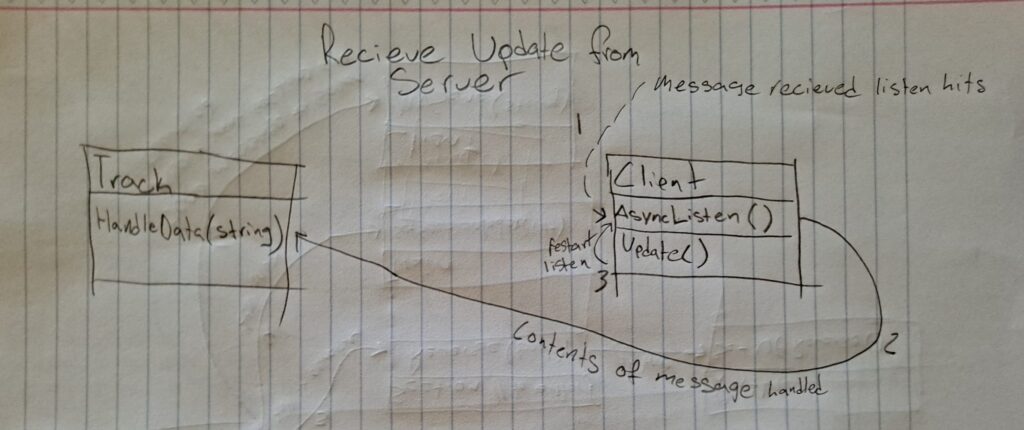 Recieve Update from
Server
Message recieved listen hits
1
Track
HandleData(string)
Client
AsyncListen()
Update()
restart
listen
3
2
Contents of message handled